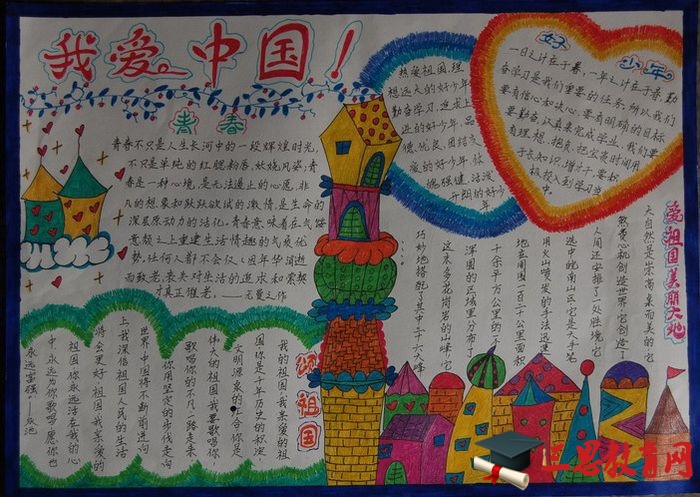 我爱中国!
青春
青春不只是人生长河中的一段辉煌时光,
不只是单纯的红腮粉唇,妖娆风姿;青
春是一种心境,是无法遏止的心愿,非
凡的想象和跃跃欲试的激情,是生命的
深层原动力的活化。青春意味着在气馁
意颓之上重建生活情趣的气质优
势,任何人都不会仅仅因年华消逝
而致老,丧失对生活的追求和索契
才真正催老。——尤曼文作
热爱祖国,理
想远大的好少年
勤奋学习,追求上
进的好少年,品
德优良,团结友
爱的好少年,体
魄强健,活泼
开朗的好少年
好少年
一日之计在于春,一年之计在于春,勤
奋学习是我们重要的任务,所以我们
要有信心和决心,要有明确的目标
要勤奋,认真来完成学业,我们要
有理想,抱负,把宝贵时间用
于长知识,增才干,要积
极投入到学习当
中。
爱祖国美丽大地
大自然是崇高卓而美的它
煞费心机创造世界,它创造了
人间还安排了一处胜境,它
选中皖南山区,它是大手笔
用火山喷发的手法迅速
地在周围一百二十公里面积
千余平方公里的一个
浑圆的区域里分布了
这么多花岗岩的山峰,它
巧妙地搭配了其中三十六大峰
颂祖国
我的祖国,我亲爱的祖
国,你是千年历史的积淀,
文明源泉的汇合,你是
伟大的祖国,我要歌唱你,
歌唱你的不凡,一路走来
你用坚定的步伐走向
世界,中国将不断前进向
上,我深信祖国人民的生活
将会更好,祖国,我亲爱的
祖国,你永远活在我的心
中,永远为你歌唱,愿你也
永远富强!
思教育网